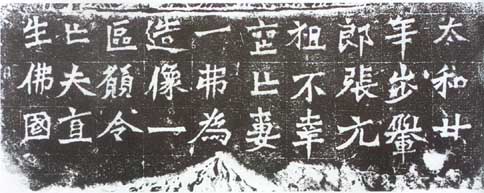 太和廿
年步轝
郎張元
祖不幸
喪亡妻
一弗為
造像一
區願令
亡夫直
生佛國